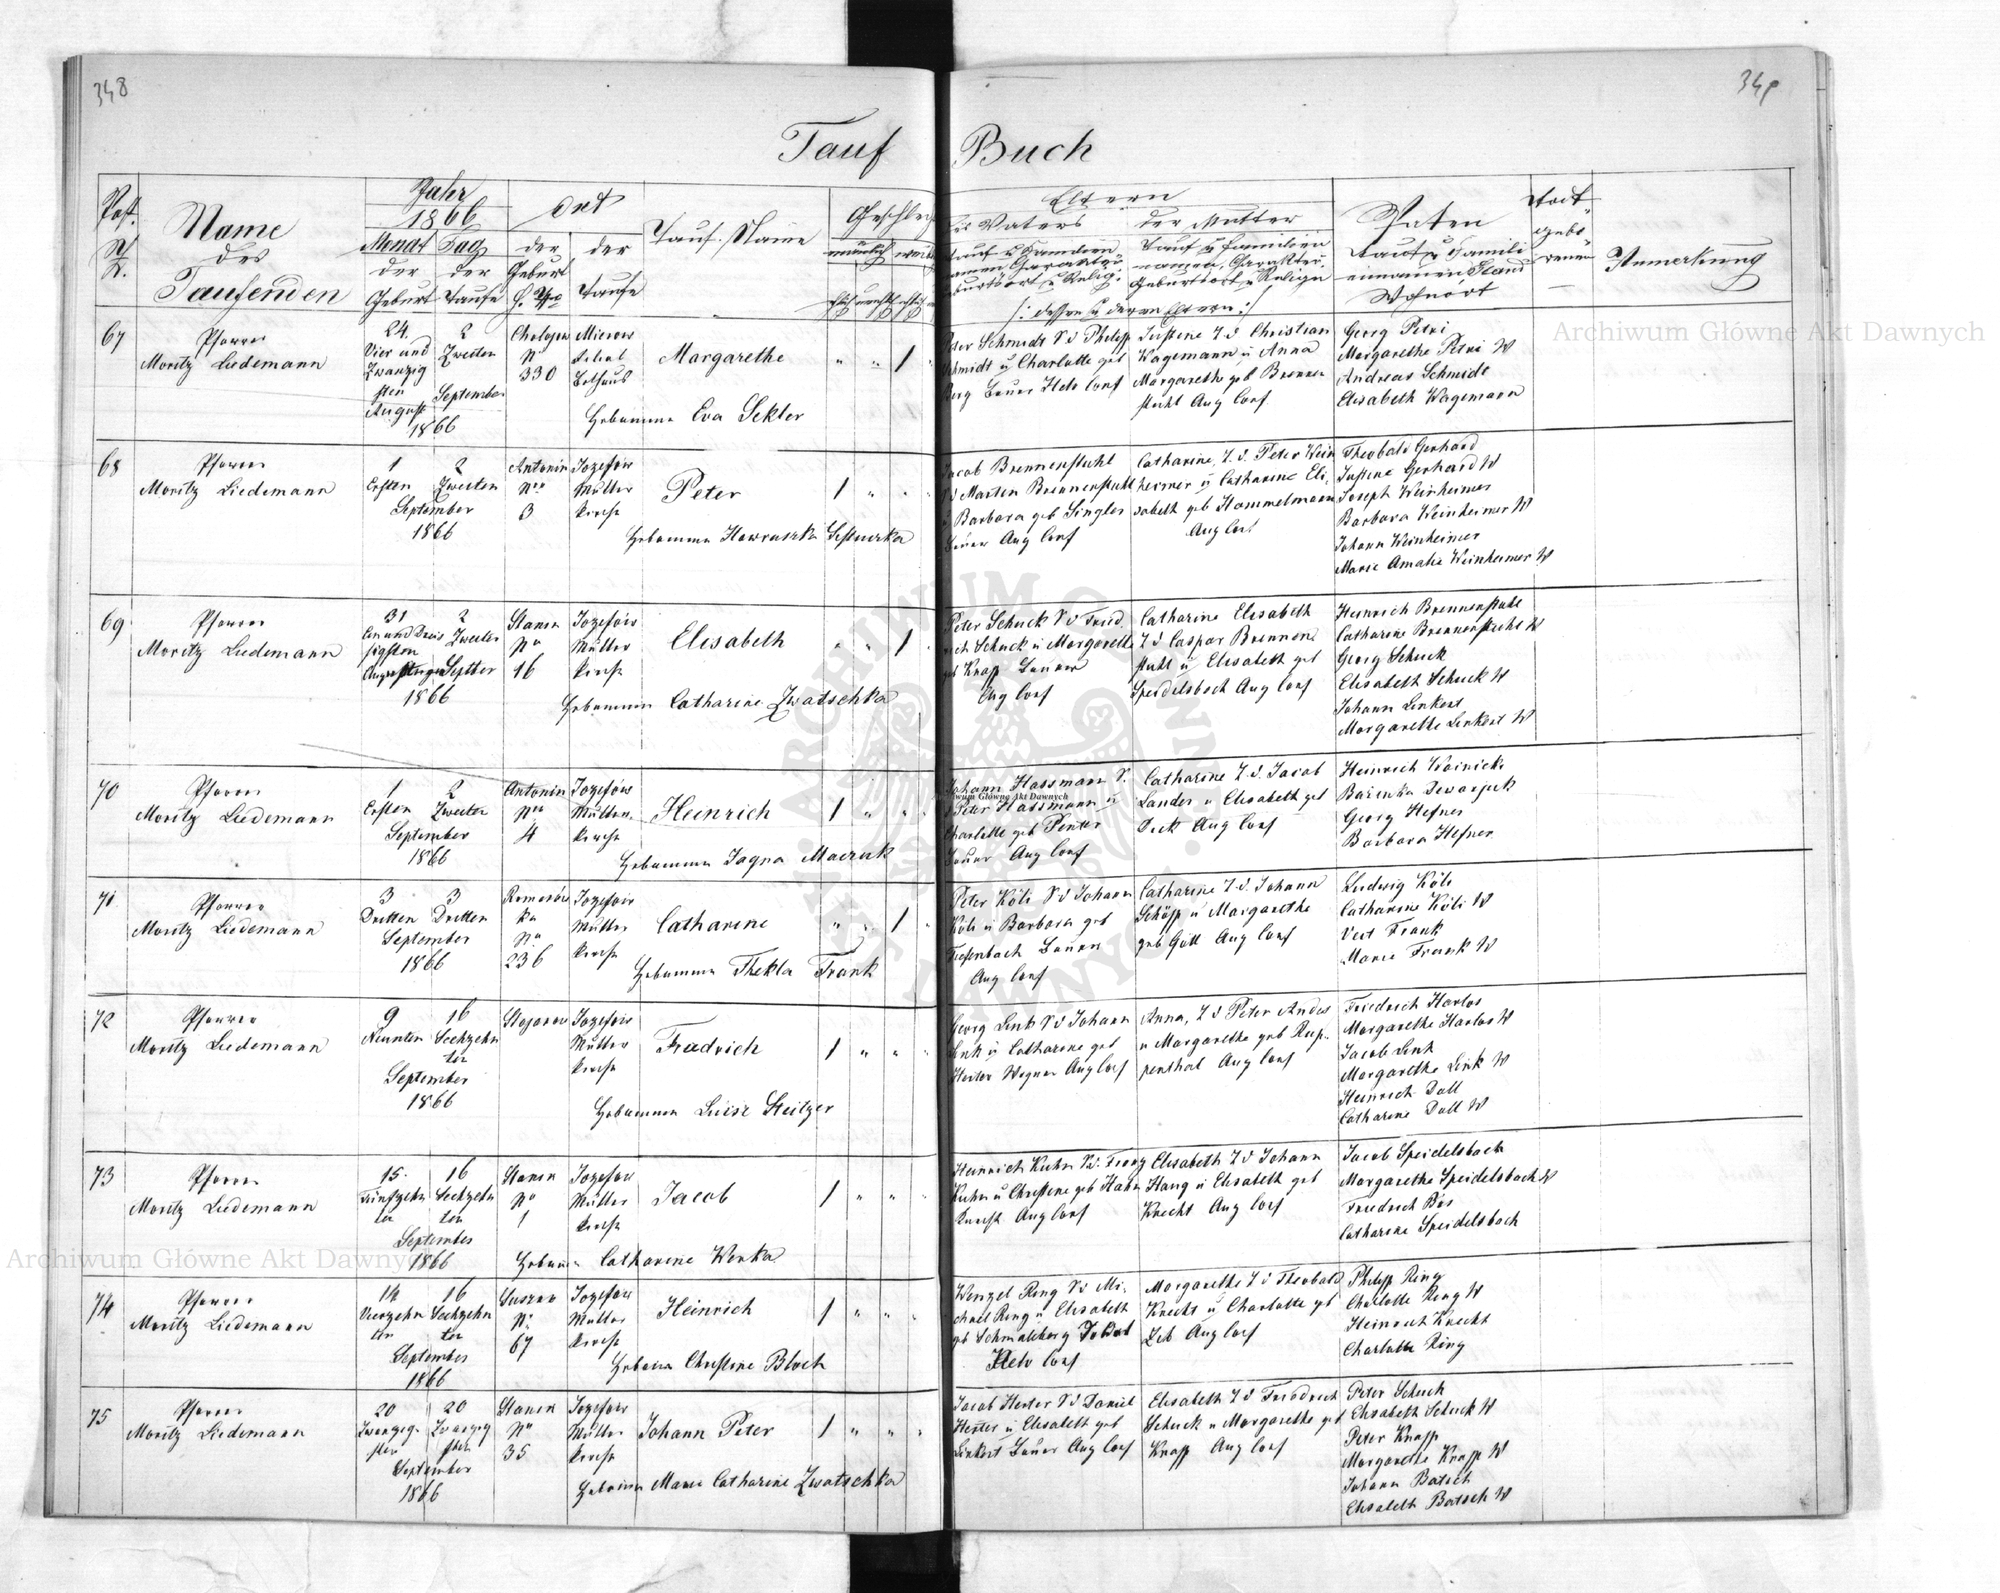 348
349
Tauf Buch
Post. Nr.
Name des Taufenden
Jahr 1866
Monat der Geburt
Tag der Taufe
Ort
der Geburt H. Nro
der Taufe
Tauf-Name
Geschlecht
männlich
Eltern
des Vaters
der Mutter
Tauf u Familien namen, Charakter, Geburtsort u Religion
/: dessen u deren Eltern :/
Pathen
Tauf u Famili
ennamen Stand
Wohnort
Todt-
gebo-
renen
Anmerkung
67
Pfarrer
Moritz Liedemann
24.
Vier und
Zwanzig
sten
August
2
Zweiten
September
1866
No
330
Mierow
Filial
Bethaus
Margarethe
" " 1
Hebamme Eva Sekler
Peter Schmidt S. v. Philipp
Schmidt u Charlotte geb
Berg Bauer Helv Conf
Justine T. v. Christian
Wagemann u Anna
Margarethe geb Brennen
stuhl Aug Conf
Georg Petri
Margarethe Petri W
Andreas Schmidt
Elisabeth Wagemann
68
Pfarrer
Moritz Liedemann
1
Ersten
2
Zweiten
September
1866
Antonin
Nro
3
Jozefow
Mutter
kirche
Peter
1 " " "
Jacob Brennenstuhl
S v Martin Brennenstuhl
u Barbara geb Singler
Bauer Aug Conf
Catharine, T. v. Peter Wein
heimer u Catharine Eli-
sabeth geb Hammelmann
Aug Conf
Theobald Gerhard
Justine Gerhard W
Joseph Weinheimer
Barbara Weinheimer W
Johann Weinheimer
Marie Amalie Weinheimer W
69
Pfarrer
Moritz Liedemann
31
Ein und Dreis
sigsten
2
Zweiter
Septber
1866
Stanin
No
16
Jozefow
Mutter
kirche
Elisabeth
" " 1
Hebamme Catharine Zwatschka
Peter Schuck S v Fried
rich Schuck u Margarethe
geb Knapp Bauer
Aug Conf
Catharine Elisabeth
T v Caspar Brennen
stuhl u Elisabeth geb
Speidelsbach Aug Conf
Heinrich Brennenstuhl
Catharine Brennenstuhl W
Georg Schuck
Elisabeth Schuck W
Johann Linkert
Margarethe Linkert W
70
Pfarrer
Moritz Liedemann
1
Ersten
2
Zweiter
September
1866
Antonin
Nro
4
Jozefow
Mutter
kirche
Heinrich
1 " " "
Hebamme Jagna
Johann Hassmann S.
v Peter Hassmann u
Charlotte geb Penter
Bauer Aug Conf
Catharine T. v. Jacob
Lander u Elisabeth geb
Dick Aug Conf
Heinrich Wainicki
Georg Hefner
Barbara Hefner
71
Pfarrer
Moritz Liedemann
3
Dritten
3
Dritten
September
1866
Romanów
ka
No
236
Jozefow
Mutter
kirche
Catharine
" " 1 "
Hebamme Thekla Frank
Peter Köli S v Johann
Köli u Barbara geb
Tiefenbach Bauer
Aug Conf
Catharine T. v. Johann
Schöpp u Margarethe
geb Gött Aug Conf
Ludwig Köli
Catharine Köli W
Veit Frank
Marie Frank W
72
Pfarrer
Moritz Liedemann
9
Neunten
16
Sechzehn
ten
September
1866
Stojanow
Jozefow
Mutter
kirche
Friedrich
1 " " "
Hebamme Luise Steitzer
Georg Link S v Johann
Link u Catharine geb
Herter Wagner Aug Conf
Anna, T v Peter Andes
u Margarethe geb Rup-
penthal Aug Conf
Friedrich Harlos
Margarethe Harlos W
Jacob Link
Margarethe Link W
Heinrich Doll
Catharine Doll W
73
Pfarrer
Moritz Liedemann
15.
Fünfzehn
ten
16
Sechzehn
ten
September
1866
Stanin
No
1
Jozefow
Mutter
kirche
Jacob
1 " " "
Catharine Wenka
Heinrich Kuhn S v. Franz
Kuhn u Christine geb Hahn
Knecht Aug Conf
Elisabeth T v Johann
Haug u Elisabeth geb
Knecht Aug Conf
Jacob Speidelsbach
Margarethe Speidelsbach W
Friedrich Bös
Catharine Speidelsbach
74
Pfarrer
Moritz Liedemann
14
Vierzehn
ten
16
Sechzehn
ten
September
1866
Suszno
No
67
Jozefow
Mutter
kirche
Heinrich
1 " " "
Christine Bloch
Wenzel Ring S v Mi-
chael Ring u Elisabeth
gb Schmalzberg
Helv Conf
Margarethe T v Theobald
Knecht u Charlotte gb
Zeh Aug Conf
Philipp Ring
Charlotte Ring W
Heinrich Knecht
Charlotte Ring
75
Pfarrer
Moritz Liedemann
20
Zwanzig
sten
20
Zwanzig
sten
September
1866
Stanin
No
35
Jozefow
Mutter
kirche
Johann Peter
1 " " "
Marie Catharine Zwatschka
Jacob Herter S v Daniel
Herter u Elisabeth geb
Linkert Bauer Aug Conf
Elisabeth T v Friedrich
Schuck u Margarethe geb
Knapp Aug Conf
Peter Schuck
Elisabeth Schuck W
Peter Knapp
Margarethe Knapp W
Johann Batsch
Elisabeth Batsch W
Archiwum Główne Akt Dawnych
Archiwum Główne Akt Dawnych
Archiwum Główne Akt Dawnych